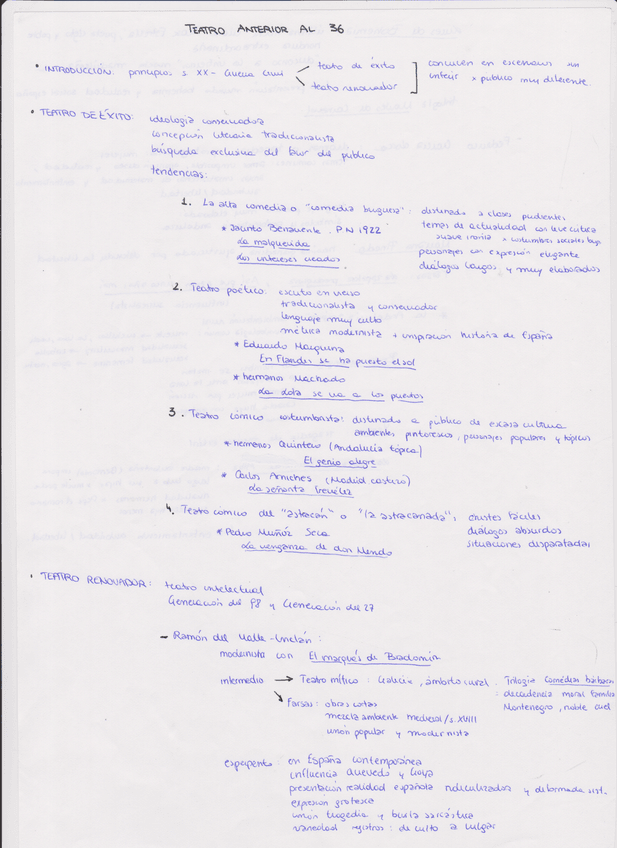 TEATRO ANTERIOR AL 36
• INTRODUCCIÓN: principios s XX - Guerra Civil
teatro de éxito
teatro renovador
conviven en escenarios
público muy diferente
• TEATRO DE ÉXITO: ideología conservadora
concepción literaria tradicionalista
búsqueda exclusiva del favor del público
tendencias:
1. La alta comedia o "comedia burguesa": destinado a clases pudientes
* Jacinto Benavente. P.N 1922
La malquerida
Los intereses creados.
temas de actualidad con leve crítica
suave ironía x costumbres sociales
personajes con expresión elegante
diálogos largos y muy elaborados
2. Teatro poético: escrito en verso
tradicionalista y conservador
lenguaje muy culto
métrica modernista + inspiración historia de España
* Eduardo Marquina
En Flandes se ha puesto el sol
* hermanos Machado
La Lola se va a los puertos
3. Teatro cómico costumbrista: destinado a público de escasa cultura
ambientes pintorescos, personajes populares y típicos
* hermanos Quintero (Andalucía tópica)
El genio alegre
* Carlos Arniches (Madrid castizo)
La señorita Trevélez
4. Teatro cómico del "astracán" o "la astracanada": chistes fáciles
diálogos absurdos
situaciones disparatadas
* Pedro Muñoz Seca
La venganza de don Mendo
• TEATRO RENOVADOR: teatro intelectual
Generación del 98 y Generación del 27
- Ramón del Valle-Inclán:
modernista con El marqués de Bradomín
intermedio → Teatro mítico: Galicia, ámbito rural. Trilogía Comedias bárbaras
: decadencia moral familia
Montenegro, noble cruel
Farsas: obras cortas
mezcla ambiente medieval / s. XVIII
unión popular y modernista
esperpento en España contemporánea
influencia Quevedo y Goya
presentación realidad española ridiculizada y deformada sist.
expresión grotesca
unión tragedia y burla sarcástica
variedad registros: de culto a vulgar